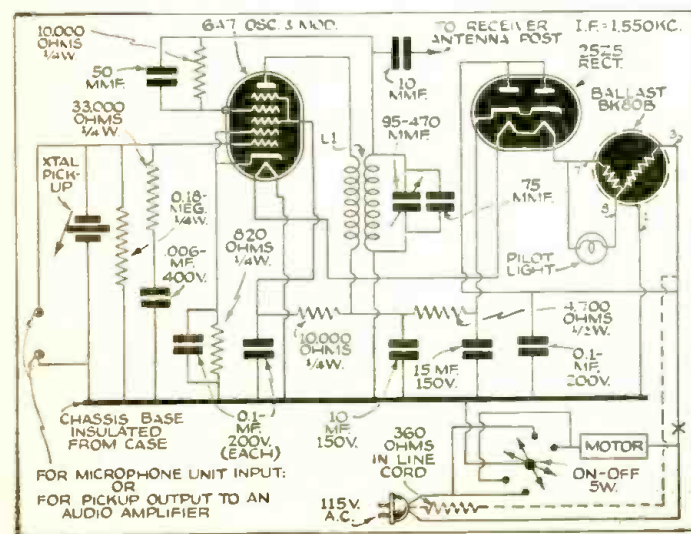 10,000
OHMS
1/4W.
6A7 OSC. & MOD.
TO RECEIVER
ANTENNA POST
I.F.=1,550KC.
25Z5
RECT.
50
MMF.
10
MMF.
BALLAST
BK80B
33,000
OHMS
1/4W.
95-470
MMF.
L1
3
XTAL
PICK-
UP
7
0.18-
MEG.
1/4W.
75
MMF.
8
.006-
MF.
400V.
820
OHMS
1/4W.
PILOT
LIGHT
10,000
OHMS
1/4W.
4,700
OHMS
1/2W.
0.1-
MF.
200V.
(EACH)
10
MF.
150V.
15 MF.
150V.
0.1-
MF.
200V.
CHASSIS BASE
INSULATED
FROM CASE
360
OHMS
IN LINE
CORD
MOTOR
X
ON-OFF
5W.
FOR MICROPHONE UNIT INPUT:
OR
FOR PICKUP OUTPUT TO AN
AUDIO AMPLIFIER
115V.
A.C.